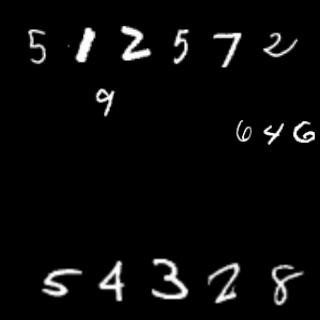 512572
9
646
54328